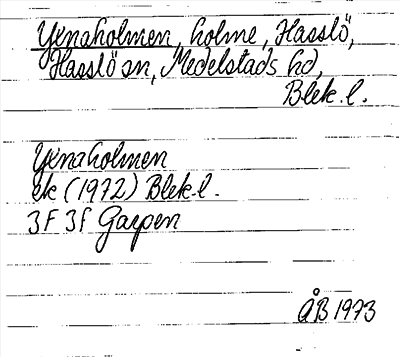 Yxnaholmen, holme, Hasslö,
Hasslö sn, Medelstads hd,
Blek.l.
Yxnaholmen
ek (1972) Blek.l.
3F 3f Garpen
ÅB 1973